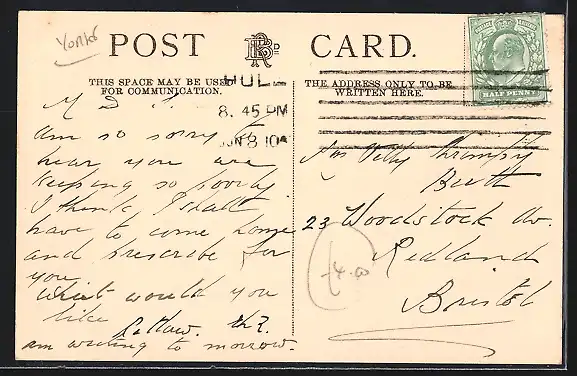 Yorks
POST CARD.
THIS SPACE MAY BE USED
FOR COMMUNICATION.
THE ADDRESS ONLY TO BE
WRITTEN HERE.
HULL
8.45 PM
JUN 8 10
HALFPENNY
M D
am so sorry to
hear you are
keeping so poorly.
I think I shall
have to come home
and prescribe for
you
What would you
like
am writing to morrow.
23 Woodstock Av.
Redland
Bristol